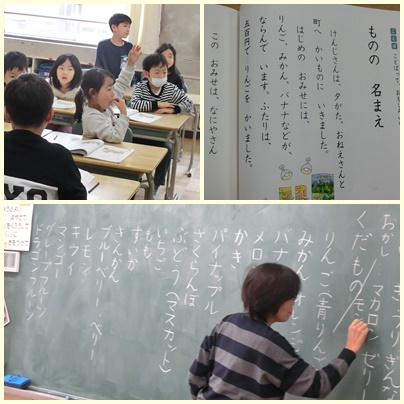 ものの 名まえ
けんじさんは、夕がた、おねえさんと
町へ かいものに いきました。
はじめの おみせには、
りんご、みかん、バナナなどが、
ならんで います。ふたりは、
五百円で りんごを かいました。
この おみせは、なにやさん
おかし マカロン ゼリー
くだものモモ
りんご(青りんご)
みかん オレンジ
バナナ
メロ
かき
パイナップル
さくらんぼ
ぶどう(マスカット)
いちご
もも
すいか
きんかん
ブルーベリー ベリー
レモン
キウイ
マンゴー
グレープフルーツ
ドラゴンフルーツ